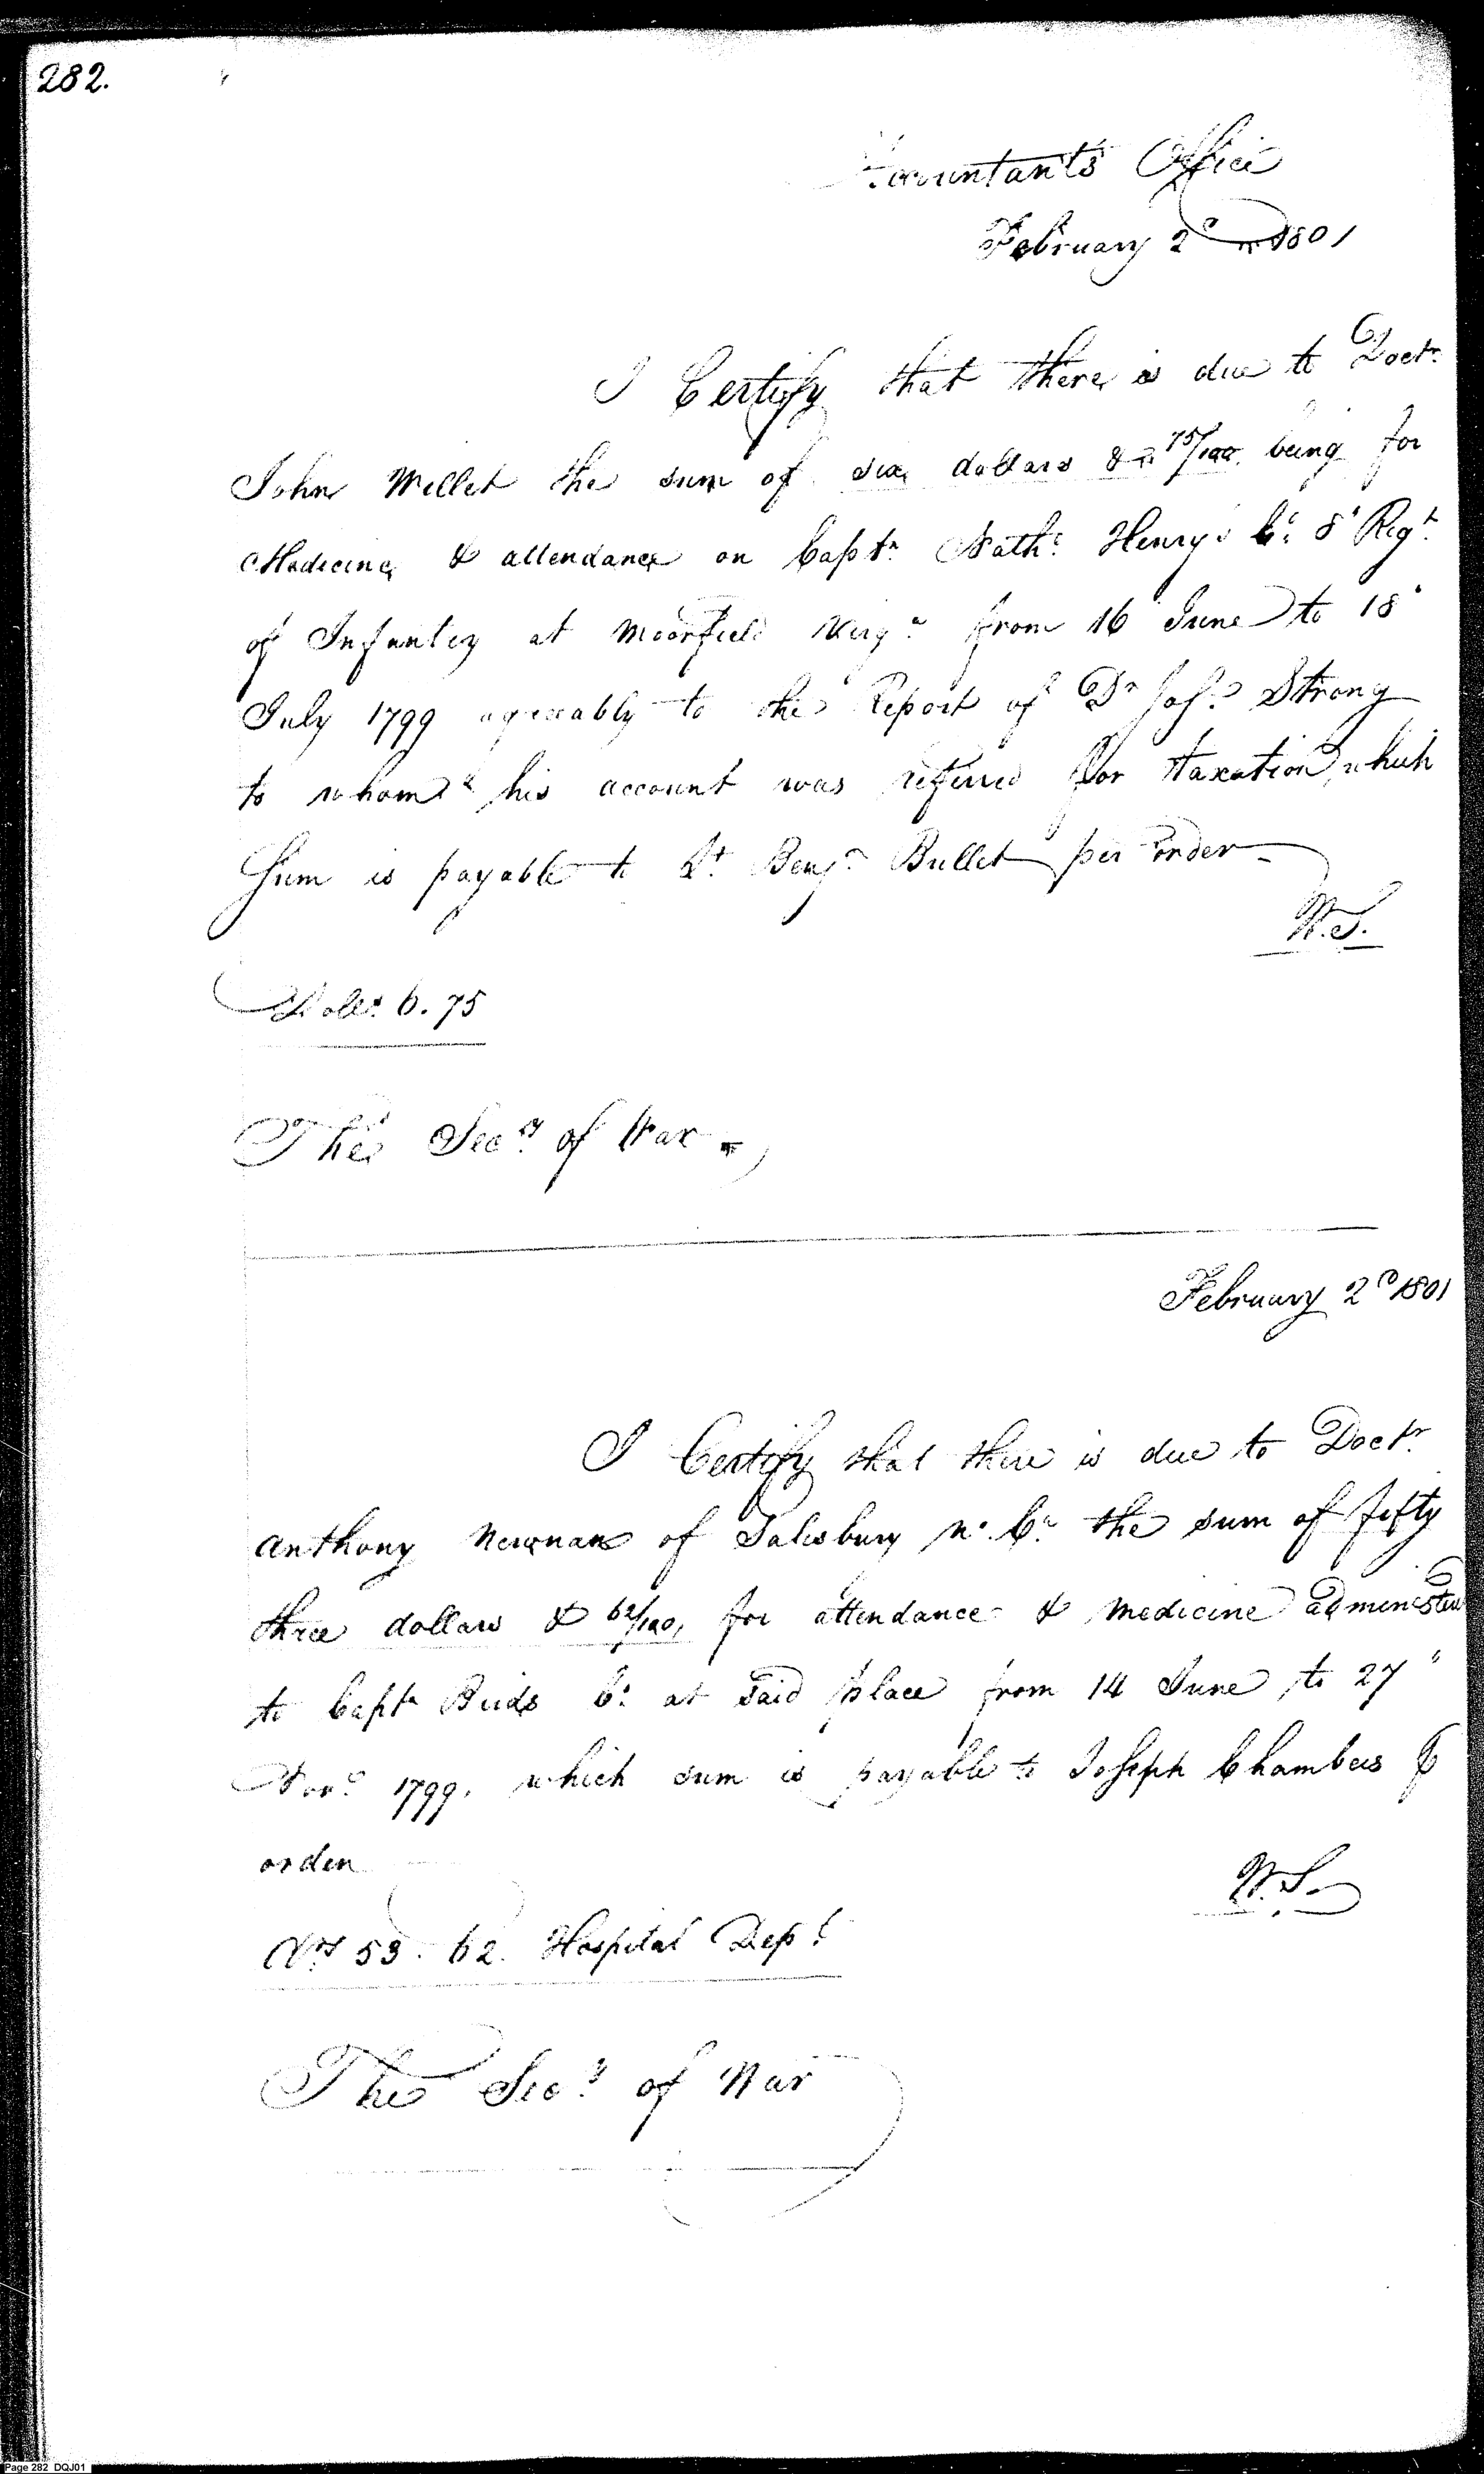 282.
Accountants Office
February 2d 1801
I Certify that there is due to Doctr
John Willet the sum of six dollars & 75/100 being for
Medicine & attendance on Captn Nathl Henrys Co 8 Regt
of Infantry at Moorfield Virga from 16 June to 18
July 1799 agreeably to the Report of Dr Josh Strong
to whom his account was referred for taxation, which
Sum is payable to Lt Benjn Bullet per order
W.S.
Dolls 6.75
The Secy of War
February 2d 1801
I Certify that there is due to Doctr
Anthony Newnan of Salisbury No Ca the sum of fifty
three dollars & 62/100, for attendance & medicine administered
to Captn Birds Co at said place from 14 June to 27
Novr 1799. which sum is payable to Joseph Chambers
order
W.S.
53.62. Hospital Dept
The Secy of War
Page 282 DQJ01